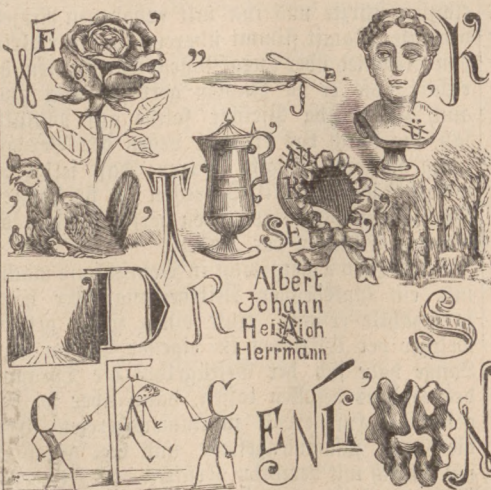 WE ’ O „ , K
, ’ T ’ K
SE „
D R Albert S
Johann
Heinrich
Herrmann
C F C ENL ’ H N